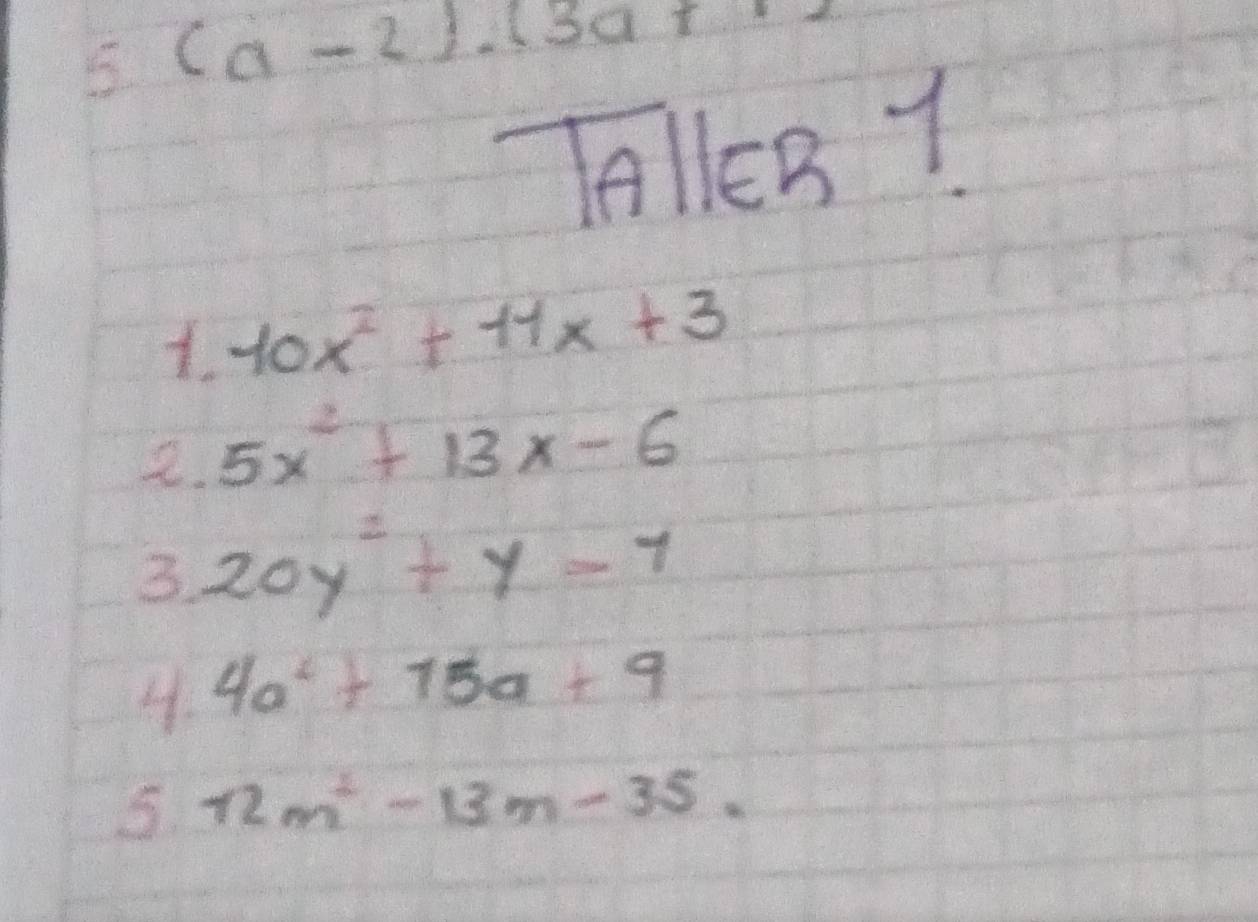 5 (a - 2).(3a +
TAllER 1.
1. 10x² + 11x + 3
2. 5x² + 13x - 6
3. 20y² + y - 1
4. 4a² + 15a + 9
5. 12m² - 13m - 35.